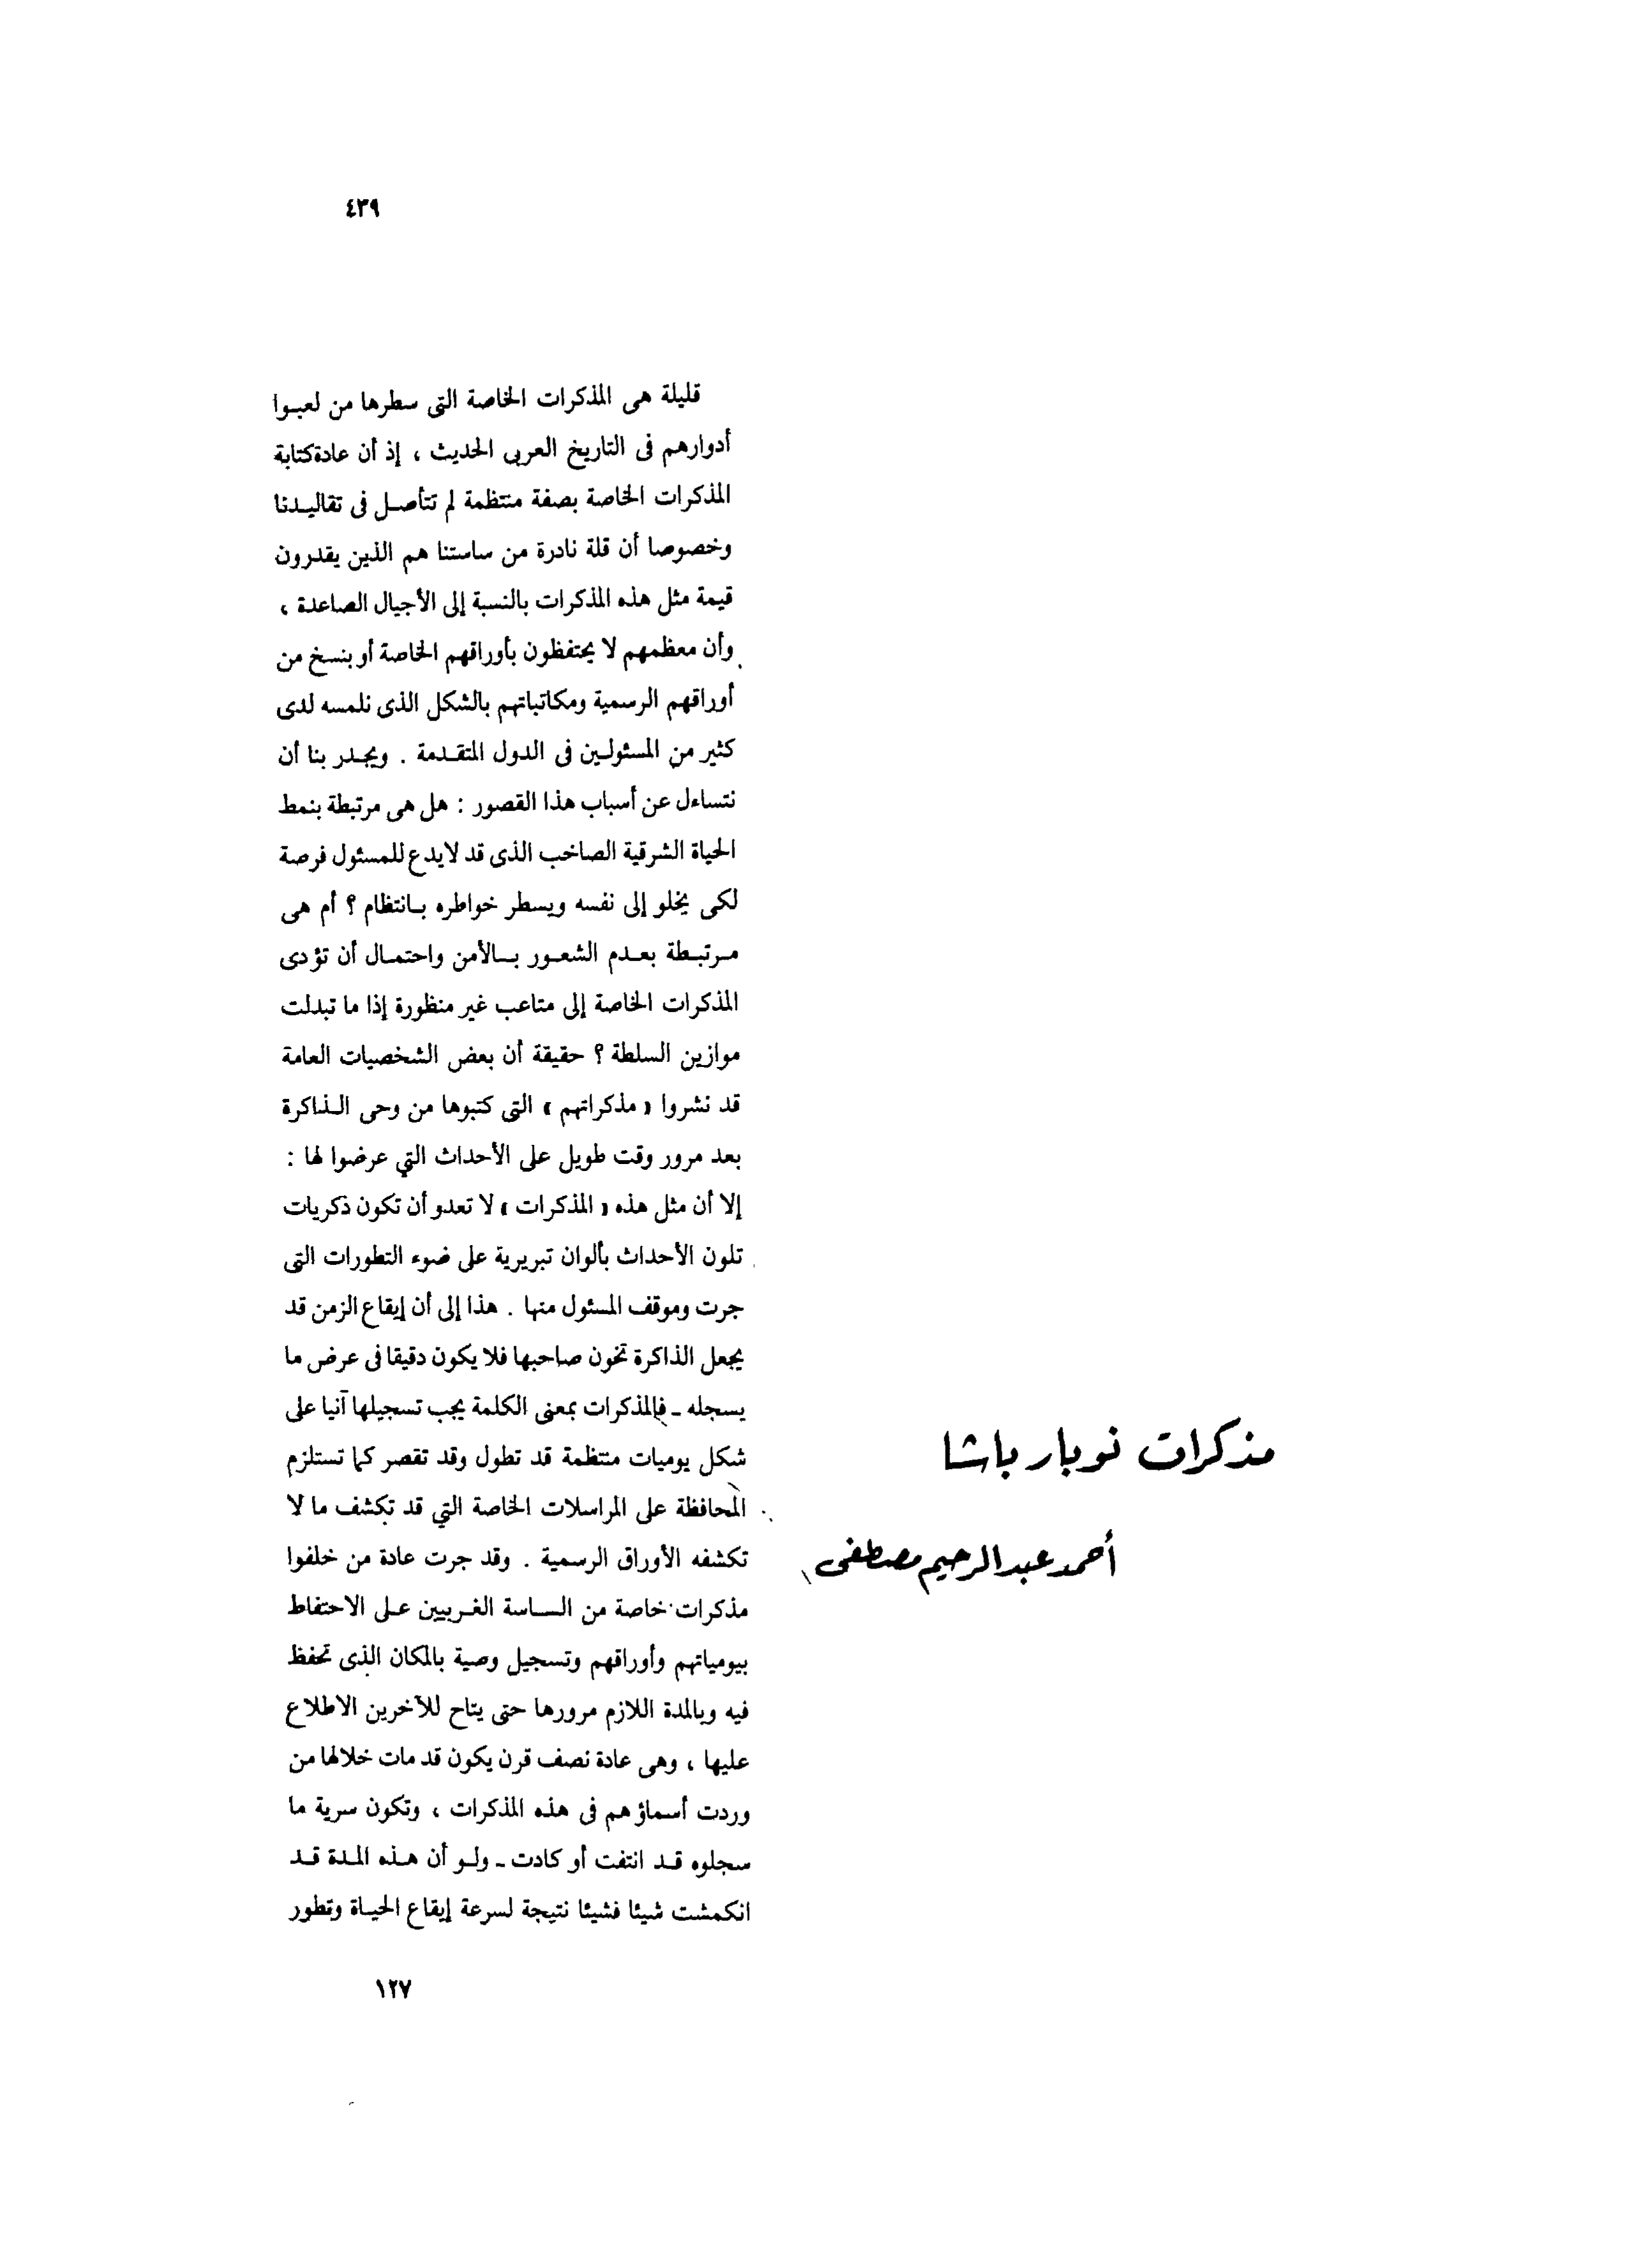 ٤٣٩
مذكرات نوبار باشا
أحمد عبد الرحيم مصطفى
قليلة هى المذكرات الخاصة التى سطرها من لعبوا
أدوارهم فى التاريخ العربى الحديث ، إذ أن عادة كتابة
المذكرات الخاصة بصفة منتظمة لم تتأصل فى تقاليدنا
وخصوصا أن قلة نادرة من ساستنا هم الذين يقدرون
قيمة مثل هذه المذكرات بالنسبة إلى الأجيال الصاعدة ،
وأن معظمهم لا يحتفظون بأوراقهم الخاصة أو بنسخ من
أوراقهم الرسمية ومكاتباتهم بالشكل الذى نلمسه لدى
كثير من المسئولين فى الدول المتقدمة . ويجدر بنا أن
نتساءل عن أسباب هذا القصور : هل هى مرتبطة بنمط
الحياة الشرقية الصاخب الذى قد لايدع للمسئول فرصة
لكى يخلو إلى نفسه ويسطر خواطره بانتظام ؟ أم هى
مرتبطة بعدم الشعور بالأمن واحتمال أن تؤدى
المذكرات الخاصة إلى متاعب غير منظورة إذا ما تبدلت
موازين السلطة ؟ حقيقة أن بعض الشخصيات العامة
قد نشروا « مذكراتهم » التى كتبوها من وحى الذاكرة
بعد مرور وقت طويل على الأحداث التي عرضوا لها :
إلا أن مثل هذه « المذكرات » لا تعدو أن تكون ذكريات
تلون الأحداث بألوان تبريرية على ضوء التطورات التى
جرت وموقف المسئول منها . هذا إلى أن إيقاع الزمن قد
يجعل الذاكرة تخون صاحبها فلا يكون دقيقا فى عرض ما
يسجله ـ فالمذكرات بمعنى الكلمة يجب تسجيلها آنيا على
شكل يوميات منتظمة قد تطول وقد تقصر كما تستلزم
المحافظة على المراسلات الخاصة التي قد تكشف ما لا
تكشفه الأوراق الرسمية . وقد جرت عادة من خلفوا
مذكرات خاصة من الساسة الغربيين على الاحتفاط
بيومياتهم وأوراقهم وتسجيل وصية بالمكان الذى تحفظ
فيه وبالمدة اللازم مرورها حتى يتاح للآخرين الاطلاع
عليها ، وهى عادة نصف قرن يكون قد مات خلالها من
وردت أسماؤهم فى هذه المذكرات ، وتكون سرية ما
سجلوه قد انتفت أو كادت ـ ولو أن هذه المدة قد
انكمشت شيئا فشيئا نتيجة لسرعة إيقاع الحياة وتطور
١٢٧